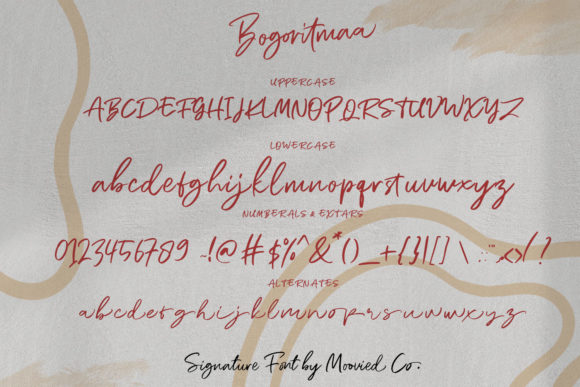 Bogoritmaa
UPPERCASE
ABCDEFGHIJKLMNOPQRSTUVWXYZ
LOWERCASE
abcdefghijklmnopqrstuvwxyz
NUMBERALS & EXTARS
0123456789 ~!@#$%^&*()_+{}|[] \ :;,<>/?
ALTERNATES
abcdefghijklmnopqrstuvwxyz
Signature Font by Moovied Co.